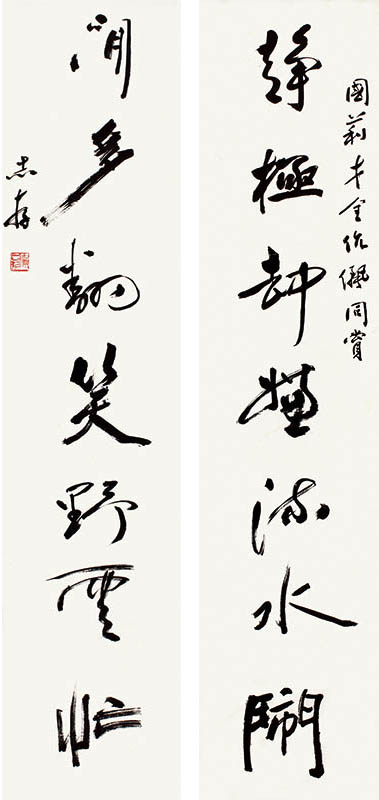 國莉才全伉儷同賞
靜極却嫌流水鬧
閒多翻笑野雲忙
志